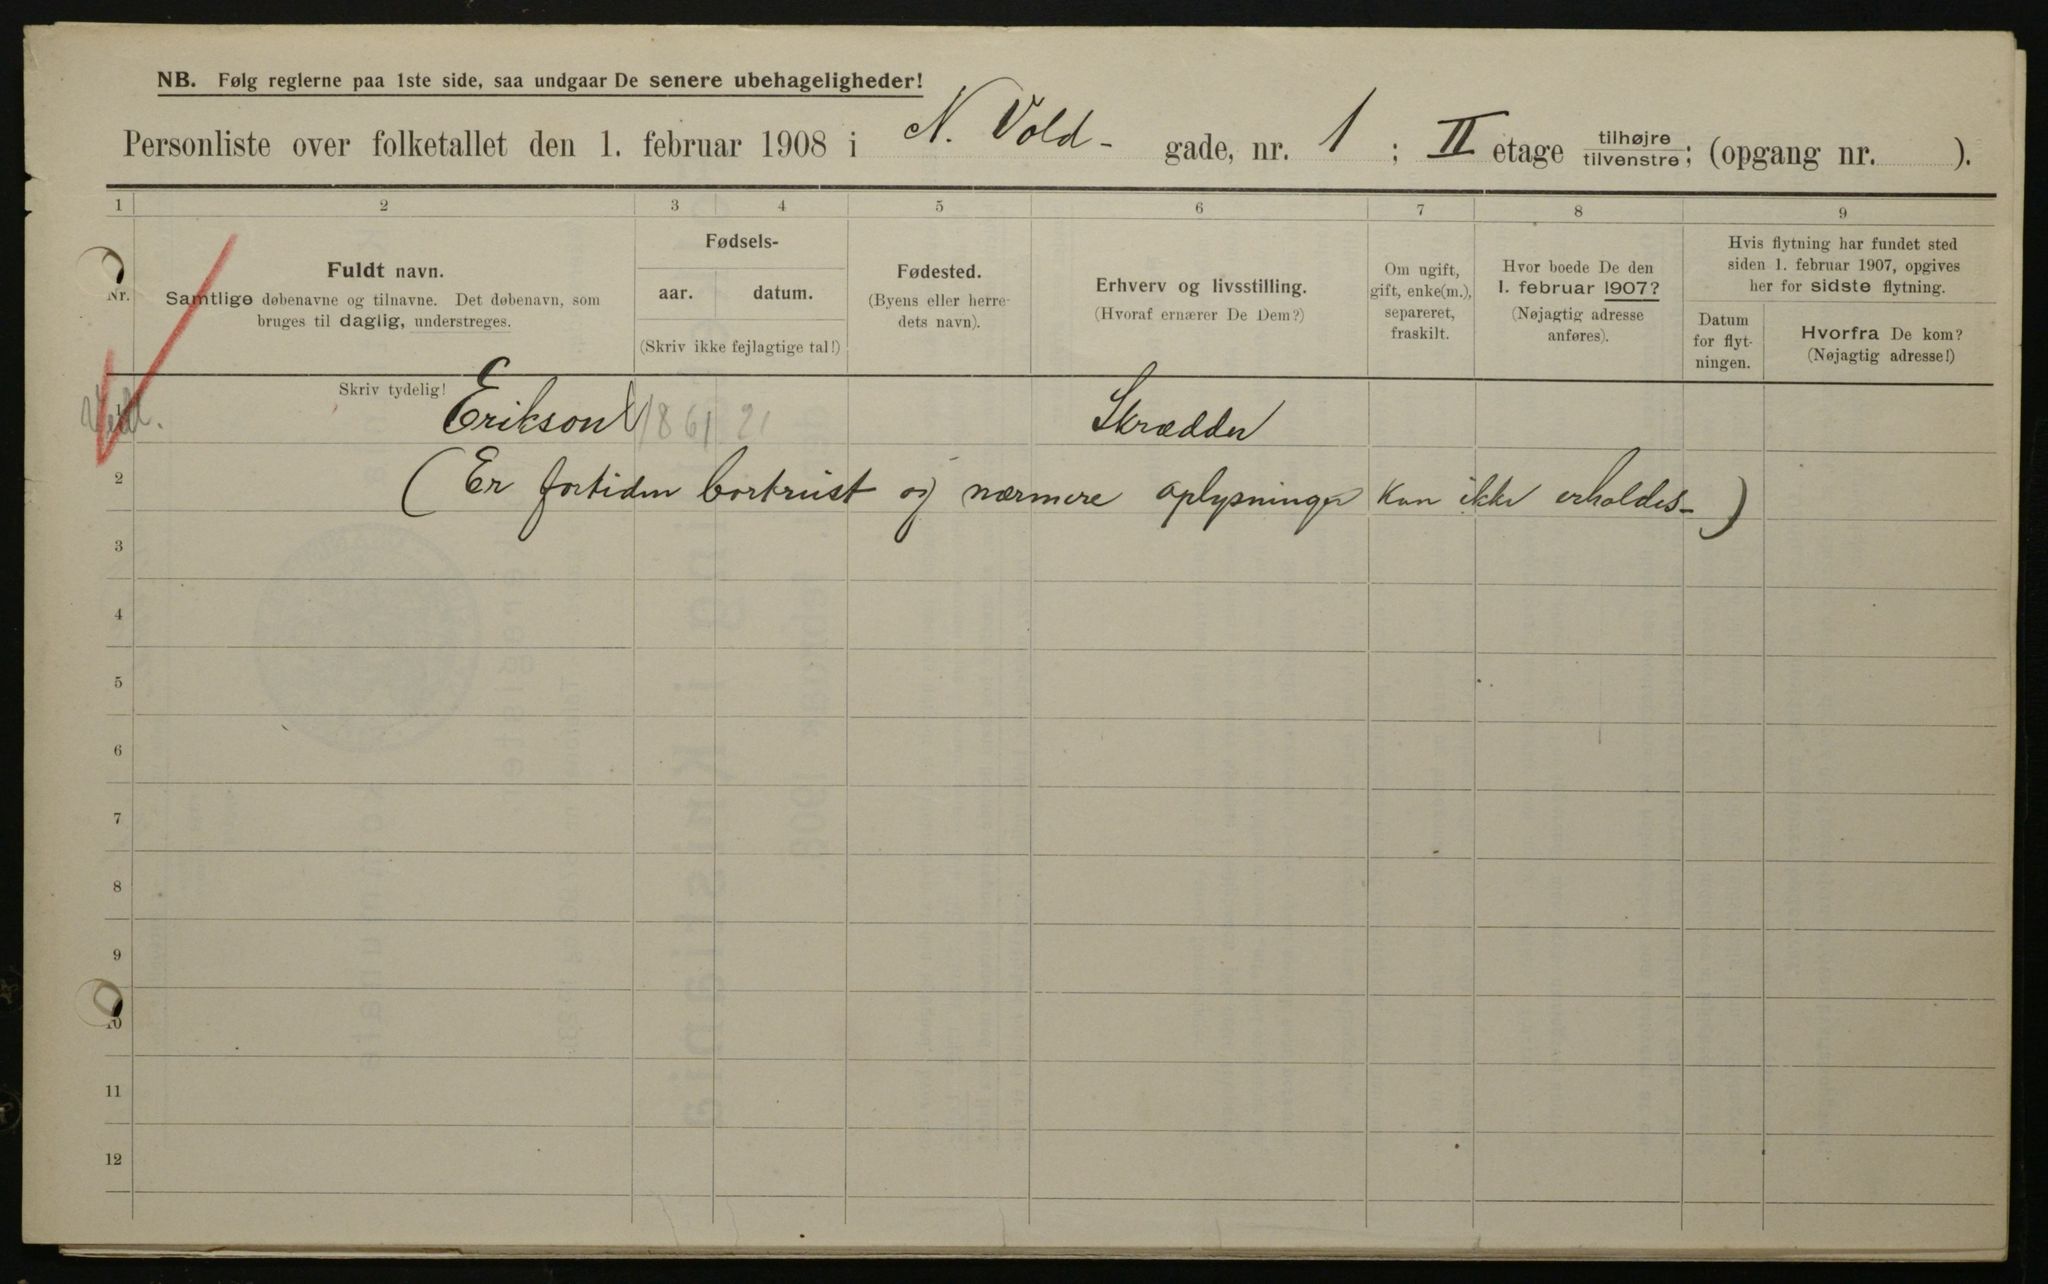 NB. Følg reglerne paa 1ste side, saa undgaar De senere ubehageligheder!
Personliste over folketallet den 1. februar 1908 i N. Vold- gade, nr. 1; II etage tilhøjre/tilvenstre; (opgang nr. ).
1 2 3 4 5 6 7 8 9
Nr.
Fuldt navn.
Samtlige døbenavne og tilnavne. Det døbenavn, som
bruges til daglig, understreges.
Skriv tydelig!
Fødsels-
aar. datum.
(Skriv ikke fejlagtige tal!)
Fødested.
(Byens eller herre-
dets navn).
Erhverv og livsstilling.
(Hvoraf ernærer De Dem?)
Om ugift,
gift, enke(m.),
separeret,
fraskilt.
Hvor boede De den
1. februar 1907?
(Nøjagtig adresse
anføres).
Hvis flytning har fundet sted
siden 1. februar 1907, opgives
her for sidste flytning.
Datum
for flyt-
ningen.
Hvorfra De kom?
(Nøjagtig adresse!)
1 Erikson 1861 21 Skrædder
2 (Er fortiden bortreist og nærmere oplysninger kan ikke erholdes-)
3
4
5
6
7
8
9
10
11
12